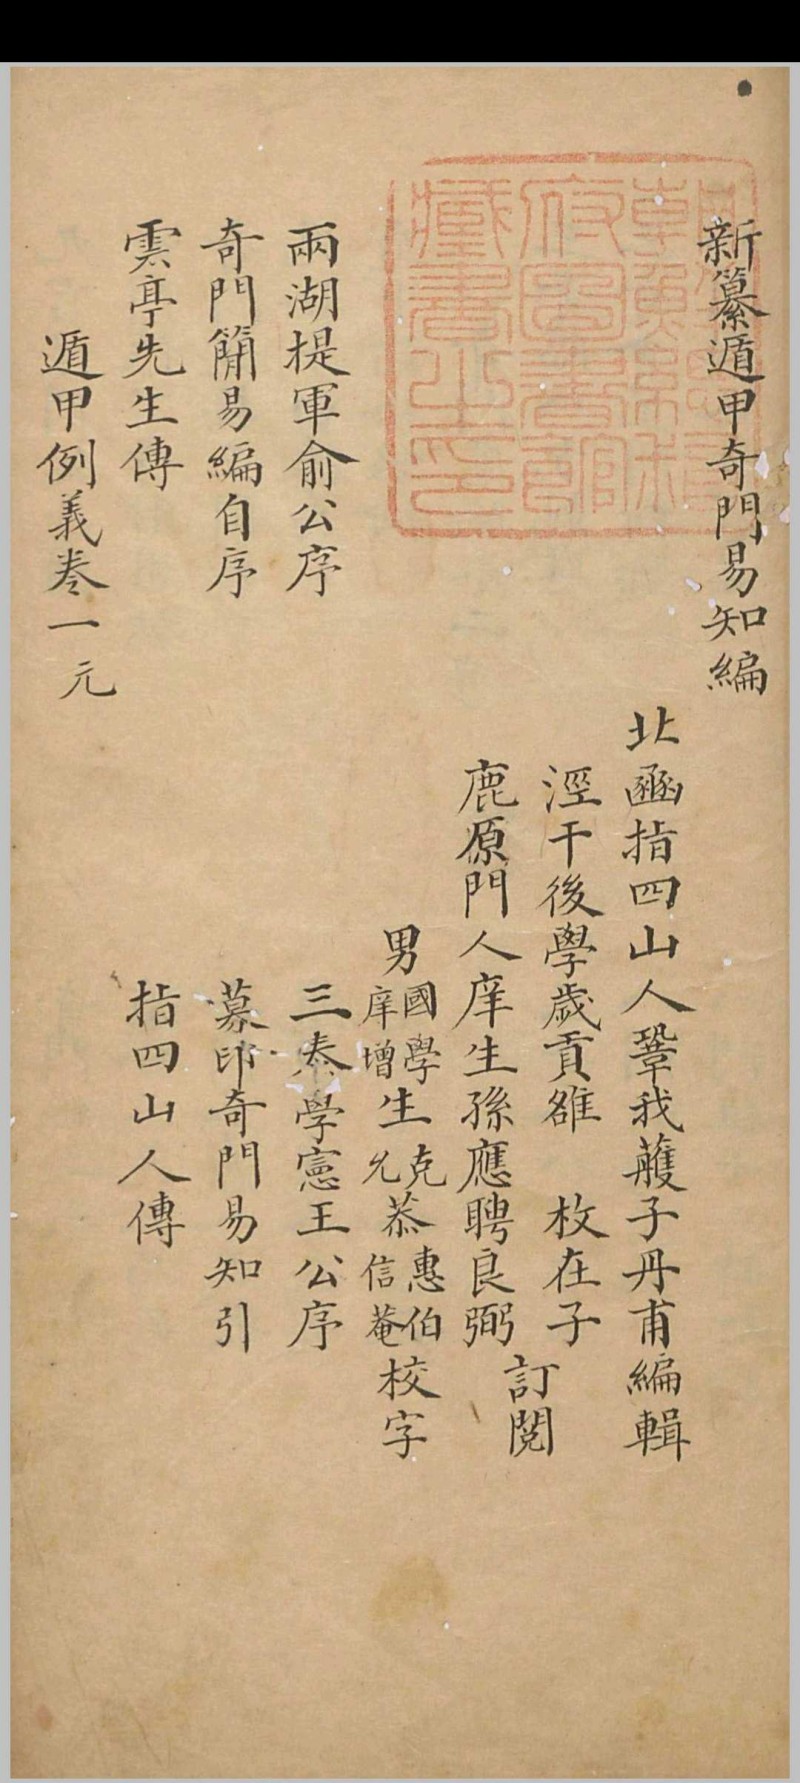 新纂遁甲奇門易知編
北函指四山人鞏我䕶子丹甫編輯
涇干後學歲貢雒　枚在子
鹿原門人庠生孫應聘良弼
訂閱
男國學庠增生克允恭惠伯信菴校字
兩湖提軍俞公序
三秦學憲王公序
奇門簡易編自序
募印奇門易知引
雲亭先生傳
指四山人傳
遁甲例義卷一元
朝鮮總督府圖書館藏書之印